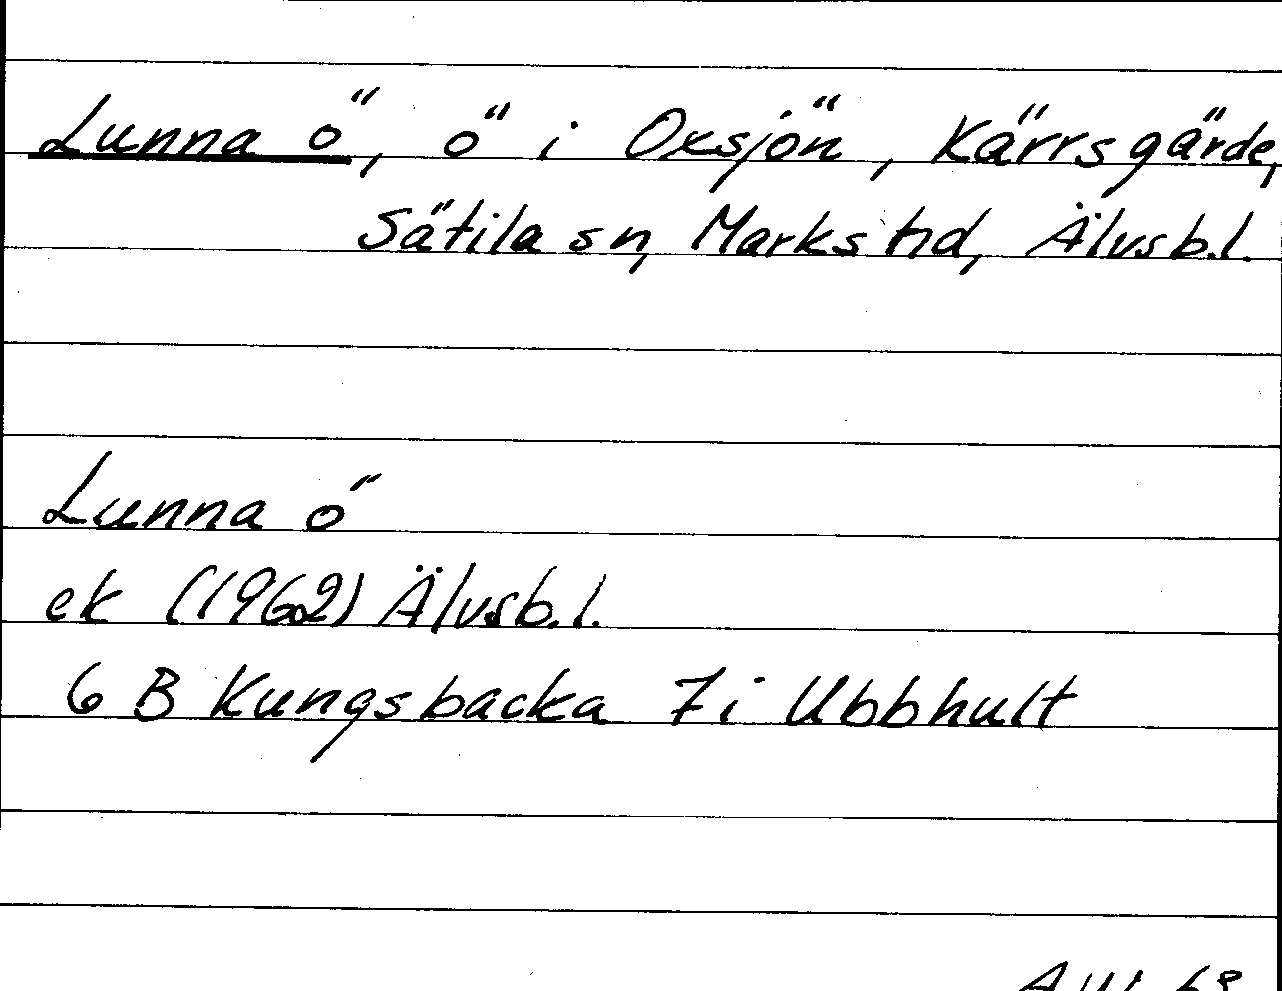 Lunna ö, ö i Oxsjön, Kärrsgärde,
Sätila sn, Marks hd, Älvsb.l.
Lunna ö
ek (1962) Älvsb.l.
6 B Kungsbacka 7i Ubbhult